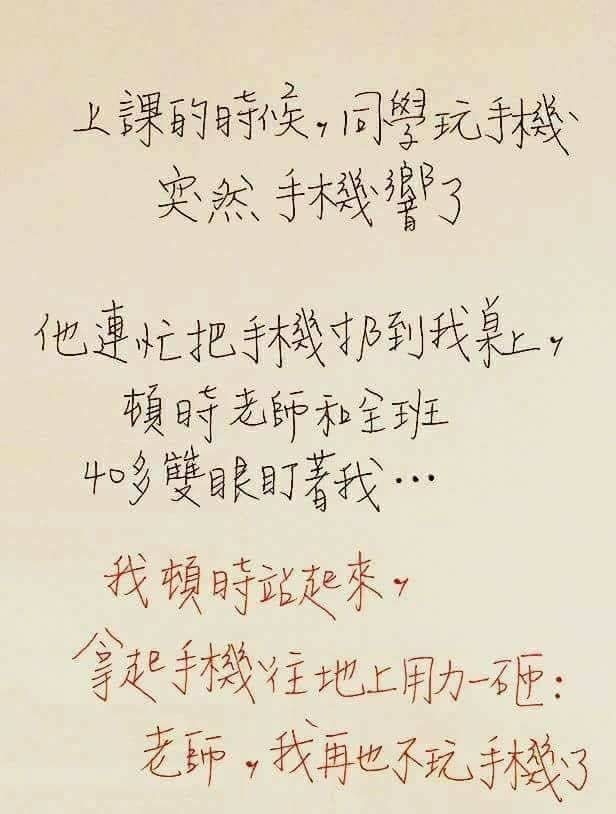 上課的時候,同學玩手機
突然手機響了
他連忙把手機扔到我桌上,
頓時老師和全班
40多雙眼盯著我…
我頓時站起來,
拿起手機往地上用力一砸:
老師,我再也不玩手機了